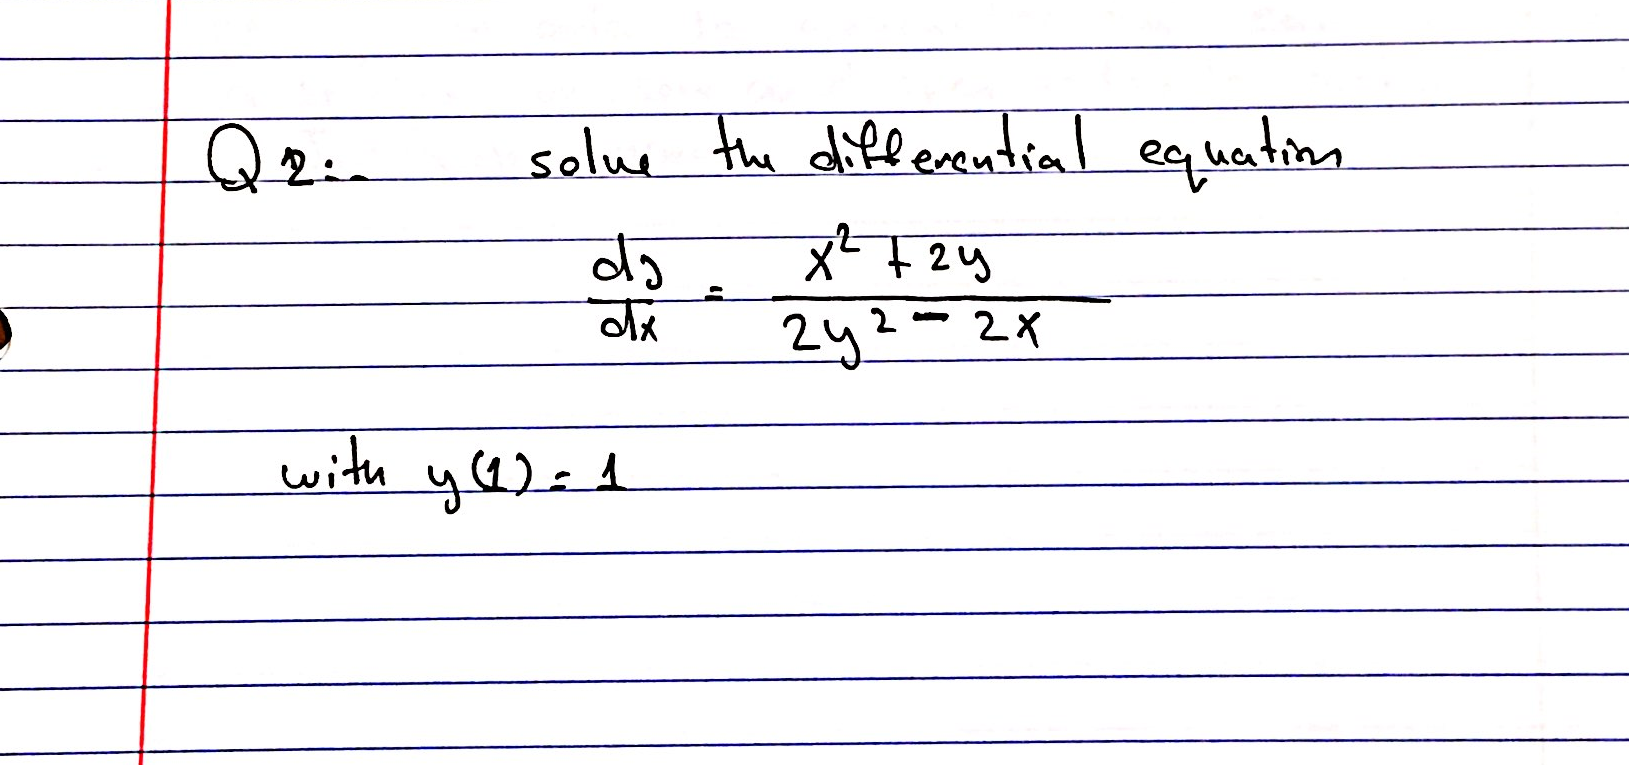 Q2:- solve the differential equation
dy/dx = (x² + 2y)/(2y² - 2x)
with y(1) = 1